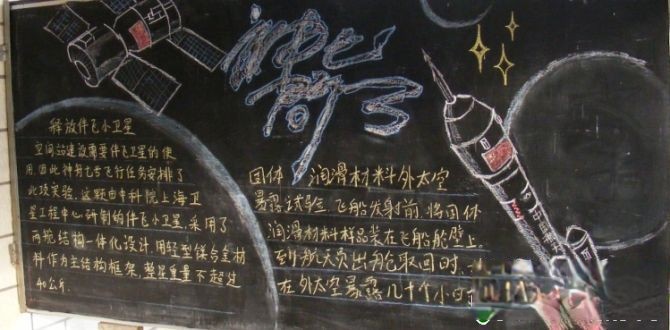 释放伴飞小卫星
空间站建设需要伴飞卫星的使
用,因此神舟七号飞行任务安排了
此项实验.这颗由中科院上海卫
星工程中心研制的伴飞小卫星,采用了
两舱结构一体化设计,用轻型镁合金材
料作为主结构框架,整星重量不超过
40公斤.
固体 润滑材料外太空
暴露试验 飞船发射前,将固体
润滑材料样品装在飞船舱壁上,
到航天员出舱取回时,
在外太空暴露几十个小时